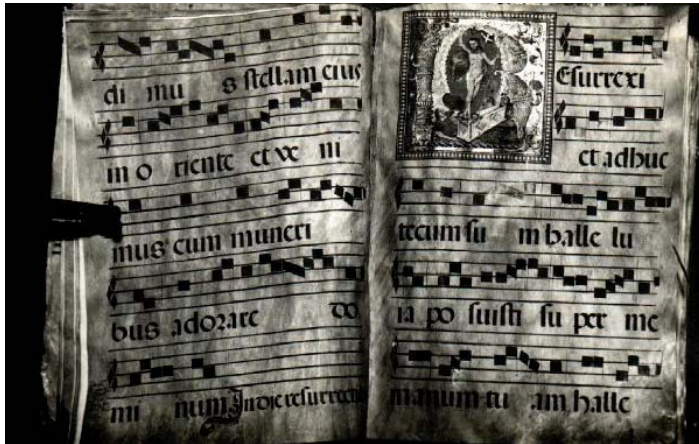 di mu s stellam eius
in o riente et ve ni
mus cum muneri
bus adorare do
mi num In die resurrecti
Resurrexi
et adhuc
tecum su m halle lu
ia po suisti su per me
manum tu am halle